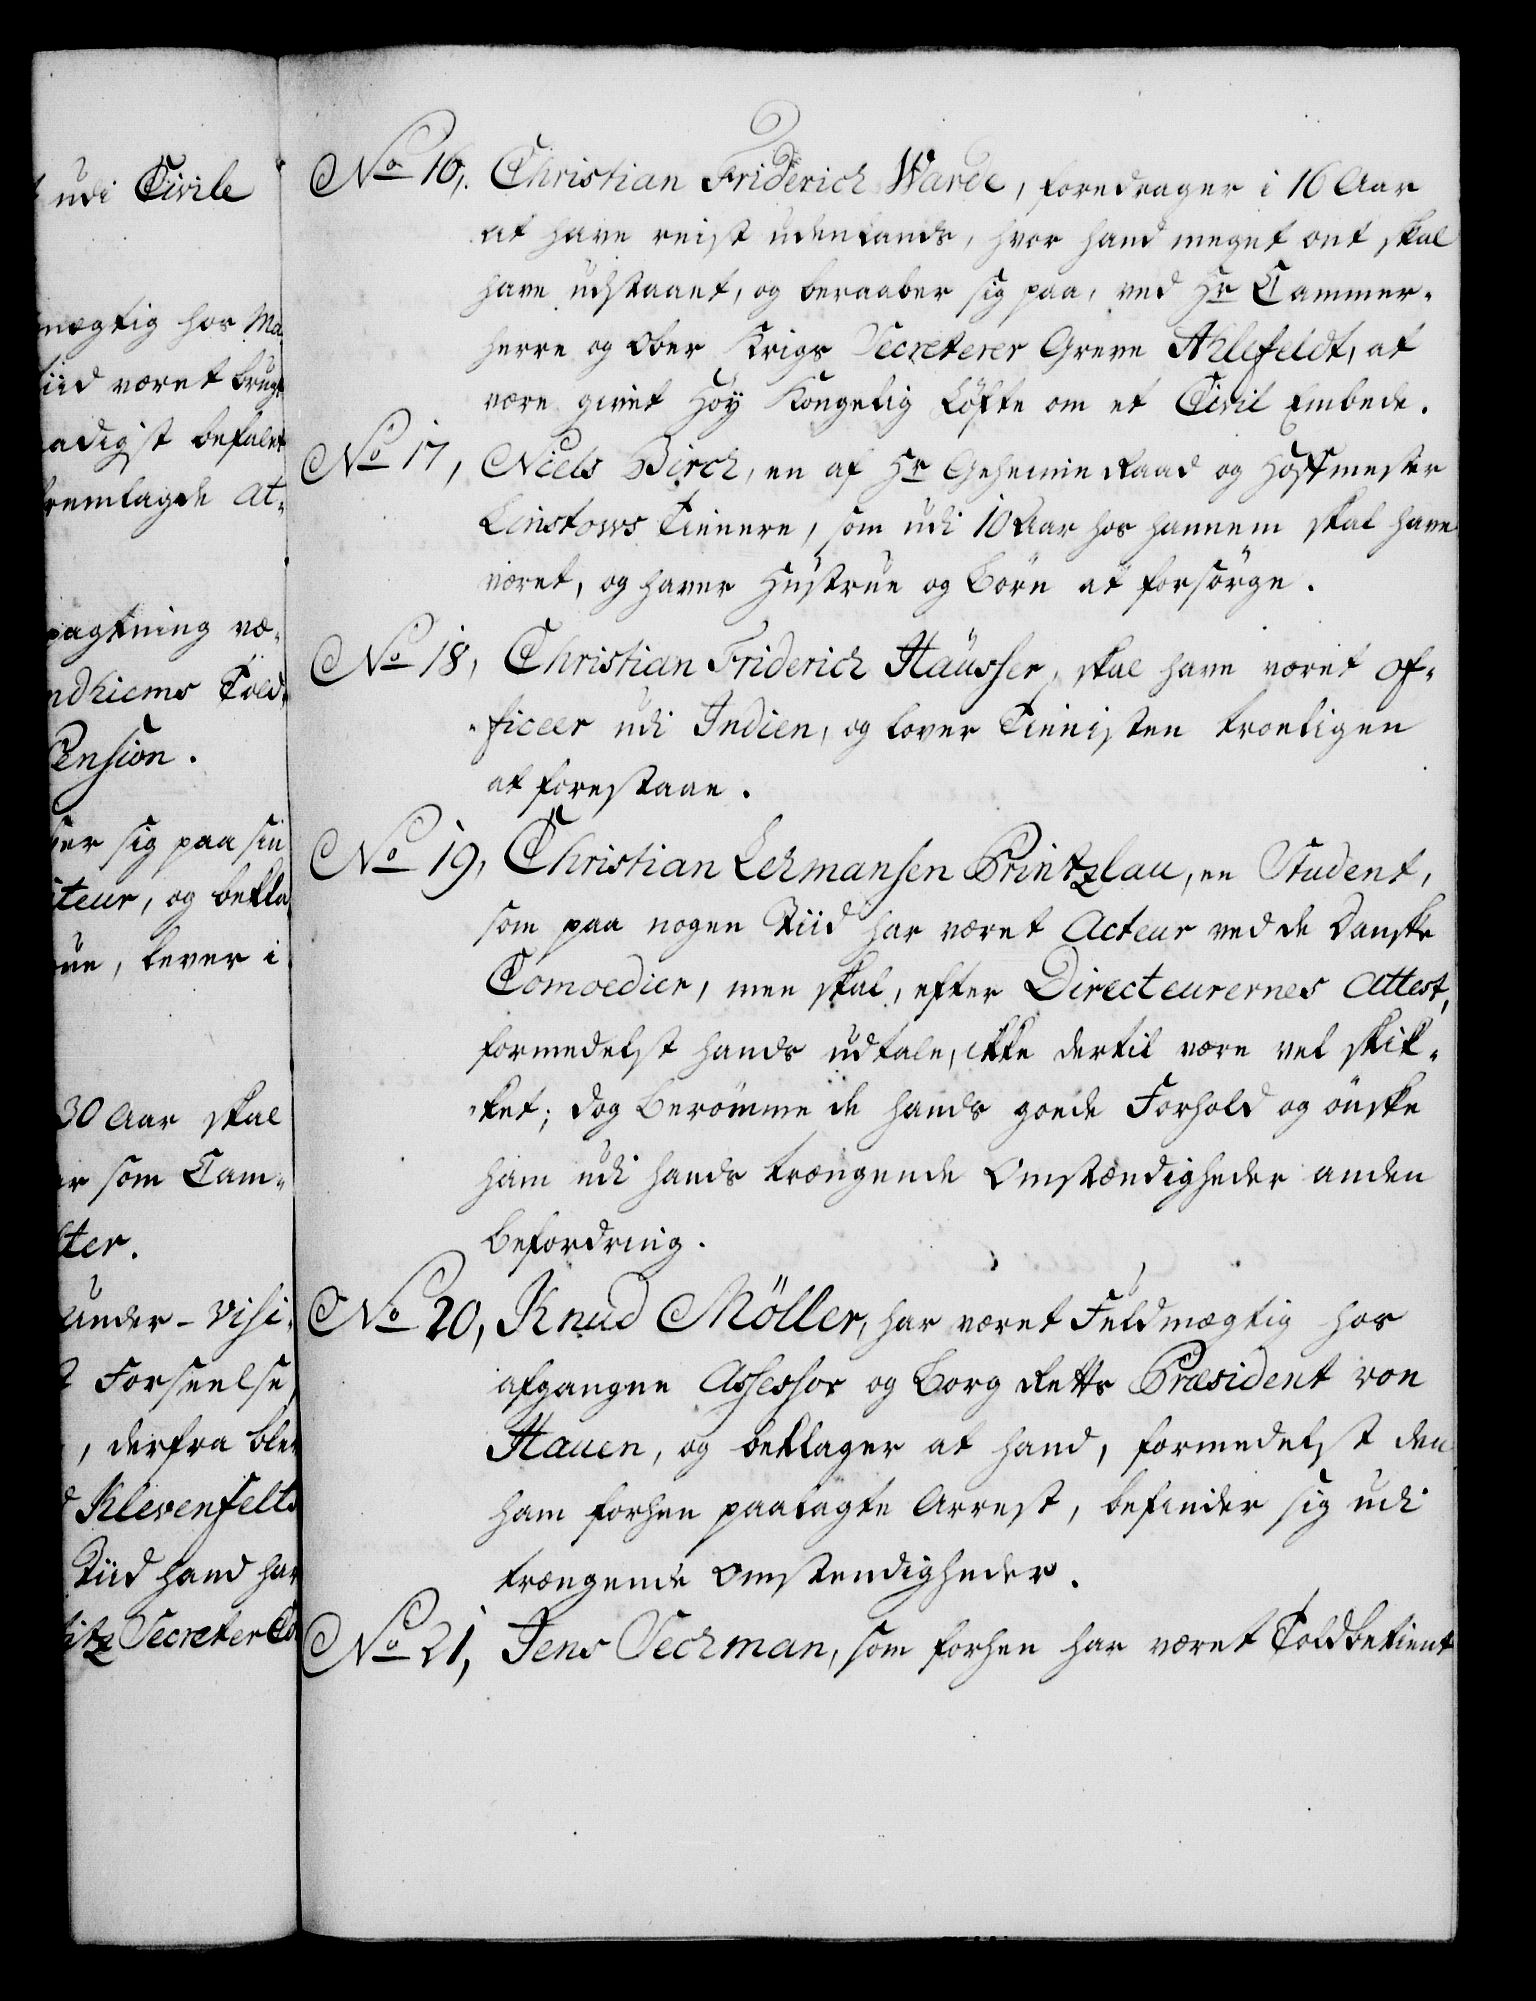 udi Civile
mægtig hos Ma-
tiid været brugt
naadigst befalet
fremlagde At-
pagtning væ-
ndhiems Told-
Pension.
ser sig paa sin
iteur, og bekla
rue, lever i
30 Aar skal
er som Cam-
lter.
Under-Visi-
Forseelse
, derfra blev
Klevenfelts
Tiid hand har
itz Secreter
No 16, Christian Friderich Warde, foredrager i 16 Aar
at have reist udenlands, hvor hand meget ont skal
have udstaaet, og beraaber sig paa, ved Hr Cammer-
herre og Ober Krigs Secreterer Greve Ahlefeldt, at
være givet Höy Kongelig Löfte om et Civil Embede.
No 17, Niels Birch, en af Hr Geheime Raad og Hoffmester
Linstows Tienere, som udi 10 Aar hos hannem skal have
været, og haver Hustrue og Börn at forsörge.
No 18, Christian Friderich Häusser, skal have været Of-
ficeer udi Indien, og lover Tienisten troeligen
at forestaae.
No 19, Christian Lehmansen Printzlau, en Student,
som paa nogen Tiid har været Acteur ved de Danske
Comoedier, men skal, efter Directeurernes Attest,
formedelst hands udtale, ikke dertil være vel skik-
ket; dog berömme de hands goede Forhold og önske
ham udi hands trængende Omstændigheder anden
befordring.
No 20, Knud Möller, har været Fuldmægtig hos
afgangne Assessor og Borg Retts Præsident von
Hauen, og beklager at hand, formedelst den
ham forhen paalagte Arrest, befinder sig udi
trængende Omstendigheder.
No 21, Jens Sechman, som forhen har været Toldbetient